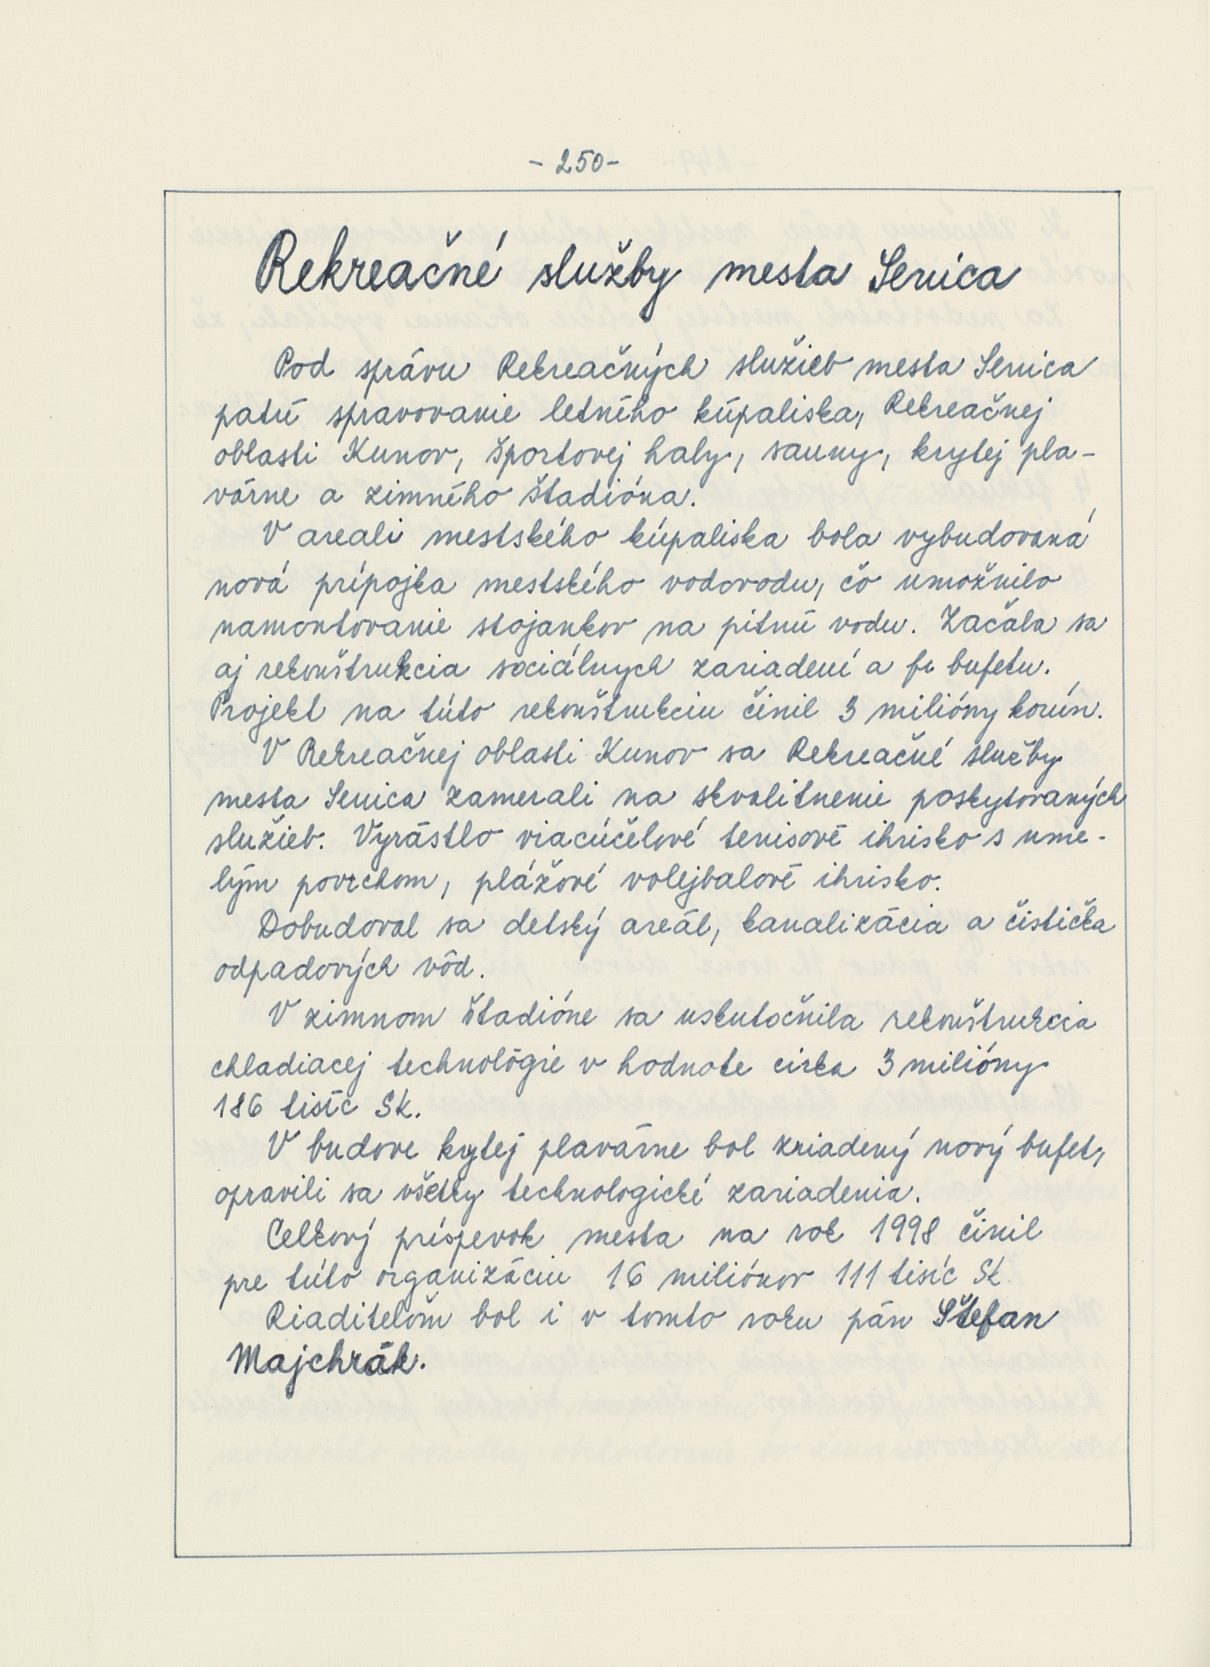 - 250 -
Rekreačné služby mesta Senica
Pod správu Rekreačných služieb mesta Senica
patrí spravovanie letného kúpaliska, Rekreačnej
oblasti Kunov, športovej haly, sauny, krytej pla-
várne a zimného štadióna.
V areali mestského kúpaliska bola vybudovaná
nová prípojka mestského vodovodu, čo umožnilo
namontovanie stojankov na pitnú vodu. Začala sa
aj rekonštrukcia sociálnych zariadení a bufetu.
Projekt na túto rekonštrukciu činil 3 milióny korún.
V Rekreačnej oblasti Kunov sa Rekreačné služby
mesta Senica zamerali na skvalitnenie poskytovaných
služieb. Vyrástlo viacúčelové tenisové ihrisko s ume-
lým povrchom, plážové volejbalové ihrisko.
Dobudoval sa detský areál, kanalizácia a čistička
odpadových vôd.
V zimnom štadióne sa uskutočnila rekonštrukcia
chladiacej technológie v hodnote cirka 3 milióny
186 tisíc Sk.
V budove krytej plavárne bol zriadený nový bufet,
opravili sa všetky technologické zariadenia.
Celkový príspevok mesta na rok 1998 činil
pre túto organizáciu 16 miliónov 111 tisíc Sk
Riaditeľom bol i v tomto roku pán Štefan
Majchrák.